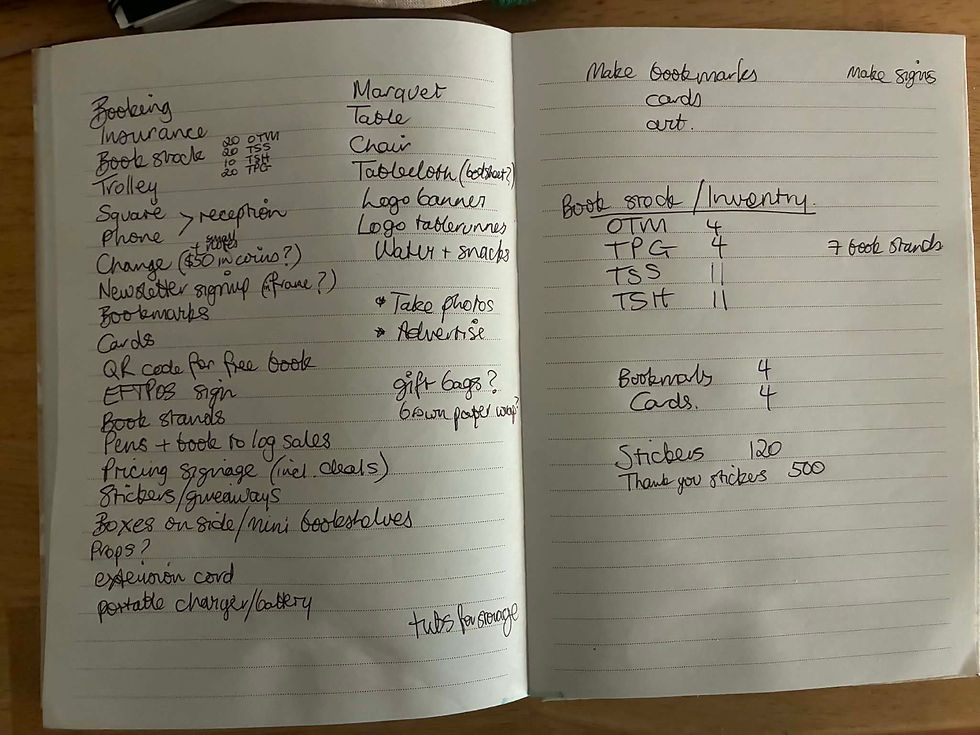 Booking
Insurance
Book stock 20 OTM
20 TSS
10 TSH
20 TPG
Trolley
Square > reception
Phone
+ small notes
Change ($50 in coins?)
Newsletter signup (in frame?)
Bookmarks
Cards
QR code for free book
EFTPOS sign
Book stands
Pens + book to log sales
Pricing signage (incl. deals)
Stickers/giveaways
Boxes on side/mini bookshelves
Props?
extension cord
portable charger/battery
Marquet
Table
Chair
Tablecloth (bedsheet?)
Logo banner
Logo tablerunner
Water + snacks
* Take photos
* Advertise
gift bags?
brown paper wrap?
tubs for storage
Make bookmarks
cards
art.
Make signs
Book stock / Inventry.
OTM 4
TPG 4
TSS 11
TSH 11
7 book stands
Bookmarks 4
Cards. 4
Stickers 120
Thank you stickers 500